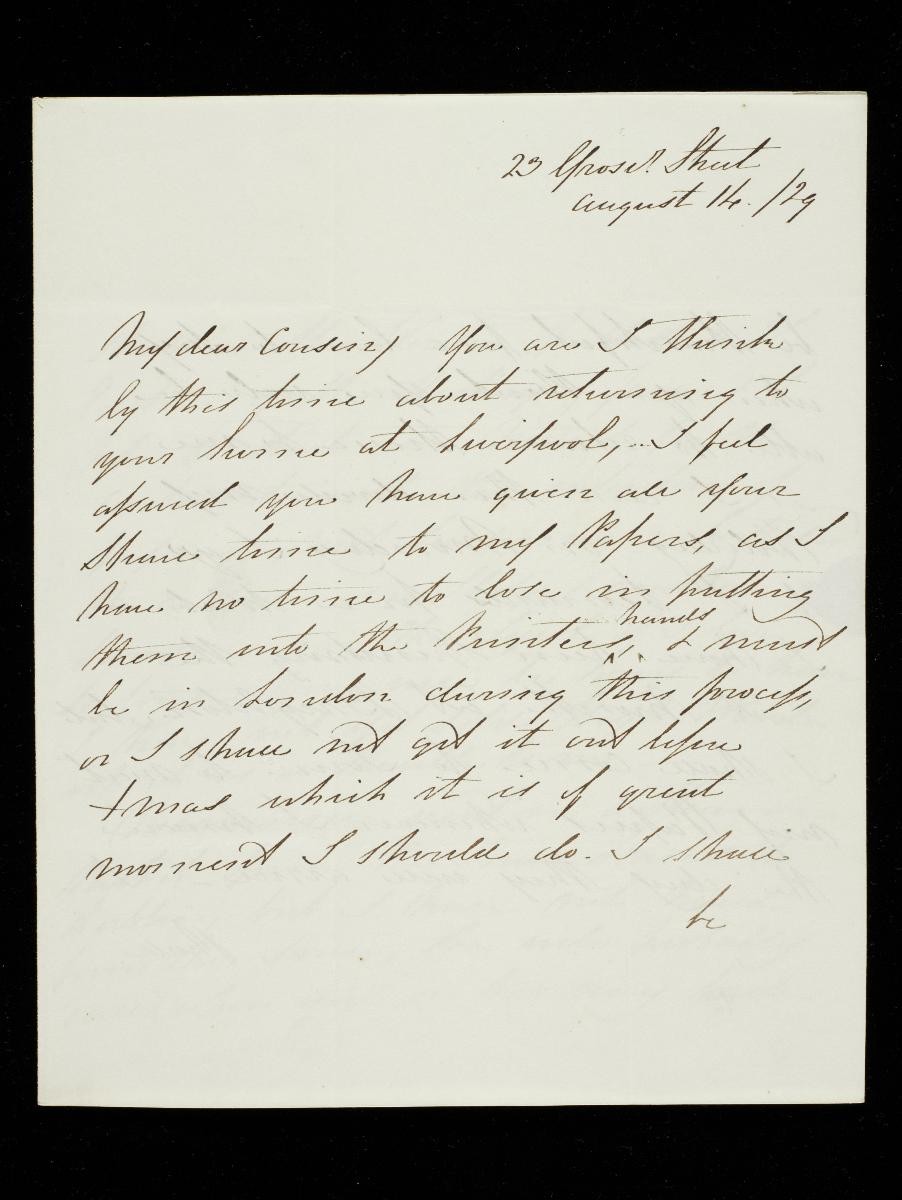 23 Grosr. Street
August 14. /29
My dear Cousin, You are I think
by this time about returning to
your home at Liverpool, .. I feel
assured you have given all your
spare time to my Papers, as I
have no time to lose in putting
them into the Printers, hands & must
be in London during this process,
or I shall not get it out before
Xmas which it is of great
moment I should do. I shall
be